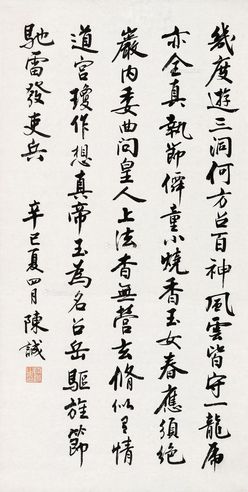 幾度遊三洞何方占百神風雲皆守一龍虎
亦全真執節仙童小燒香玉女春應須絕
巖內委曲問皇人上法杳無營玄脩似有情
道宮瓊作想真帝玉為名召岳驅旌節
馳雷發吏兵
辛巳夏四月陳誠